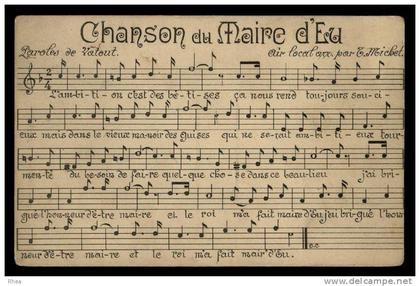 Chanson du Maire d'Eu
Paroles de Vatout. Air local arr. par T. Michel.
2 4
L'am-bi-ti-on c'est des bê-ti-ses ça nous rend tou-jours sou-ci-
eux mais dans le vieux ma-noir des Guises qui ne se-rait am-bi-ti-eux tour-
men-té du be-soin de fai-re quel-que cho-se dans ce beau lieu j'ai bri-
gué l'hon-neur d'ê-tre mai-re et le roi m'a fait maire d'Eu j'ai bri-gué l'hon-
neur d'ê-tre mai-re et le roi m'a fait mair' d'Eu. D.C.
© delcampe.net
Rhea